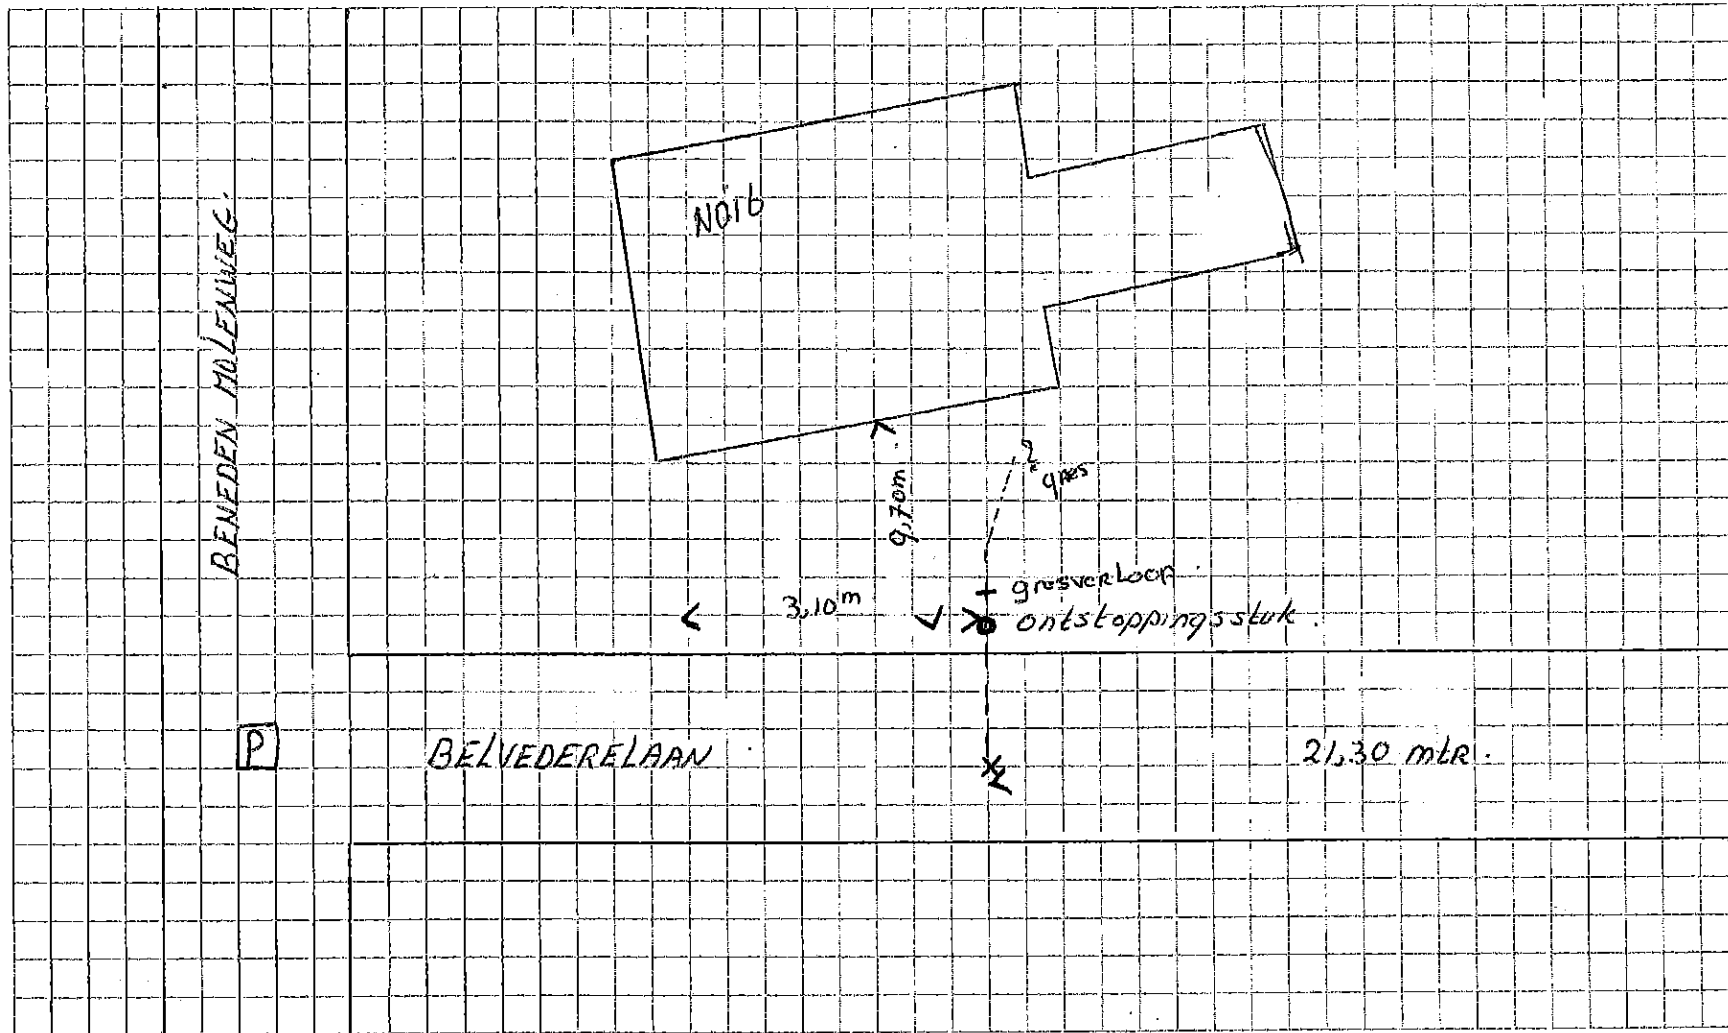 BENEDEN MOLENWEG.
NO16
9,70m.
? gres
gresverloop.
3,10m
ontstoppingsstuk.
P
BELVEDERELAAN
21,30 mtr.